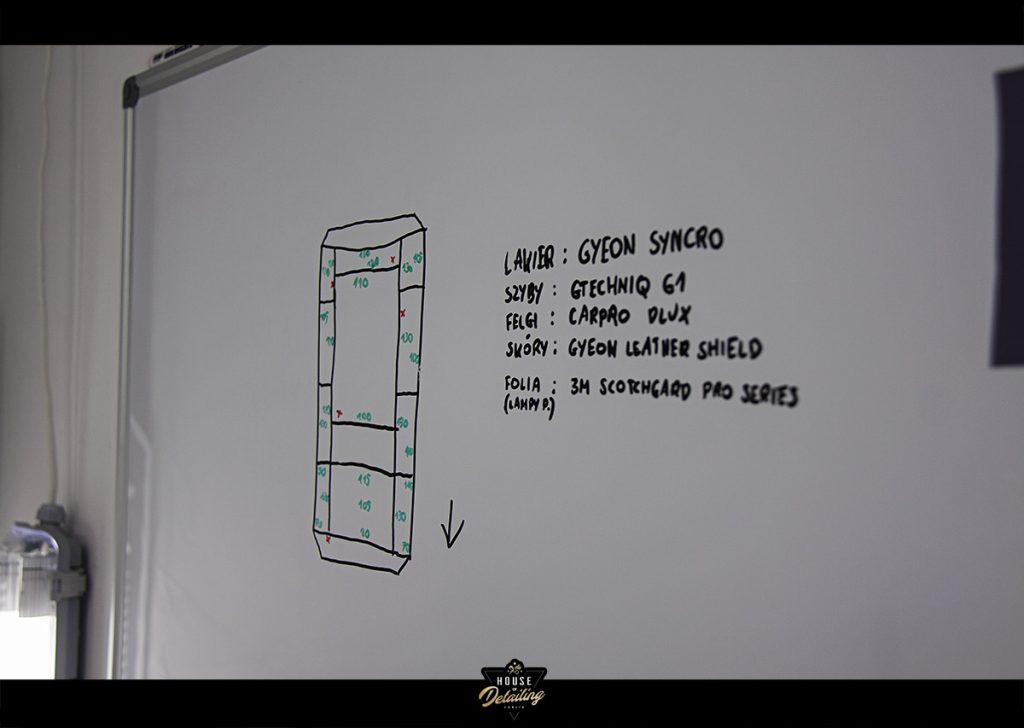 LAKIER : GYEON SYNCRO
SZYBY : GTECHNIQ G1
FELGI : CARPRO DLUX
SKÓRY : GYEON LEATHER SHIELD
FOLIA : 3M SCOTCHGARD PRO SERIES
(LAMPY P.)
110
100
115
109
90
130
HOUSE
OF
Detailing